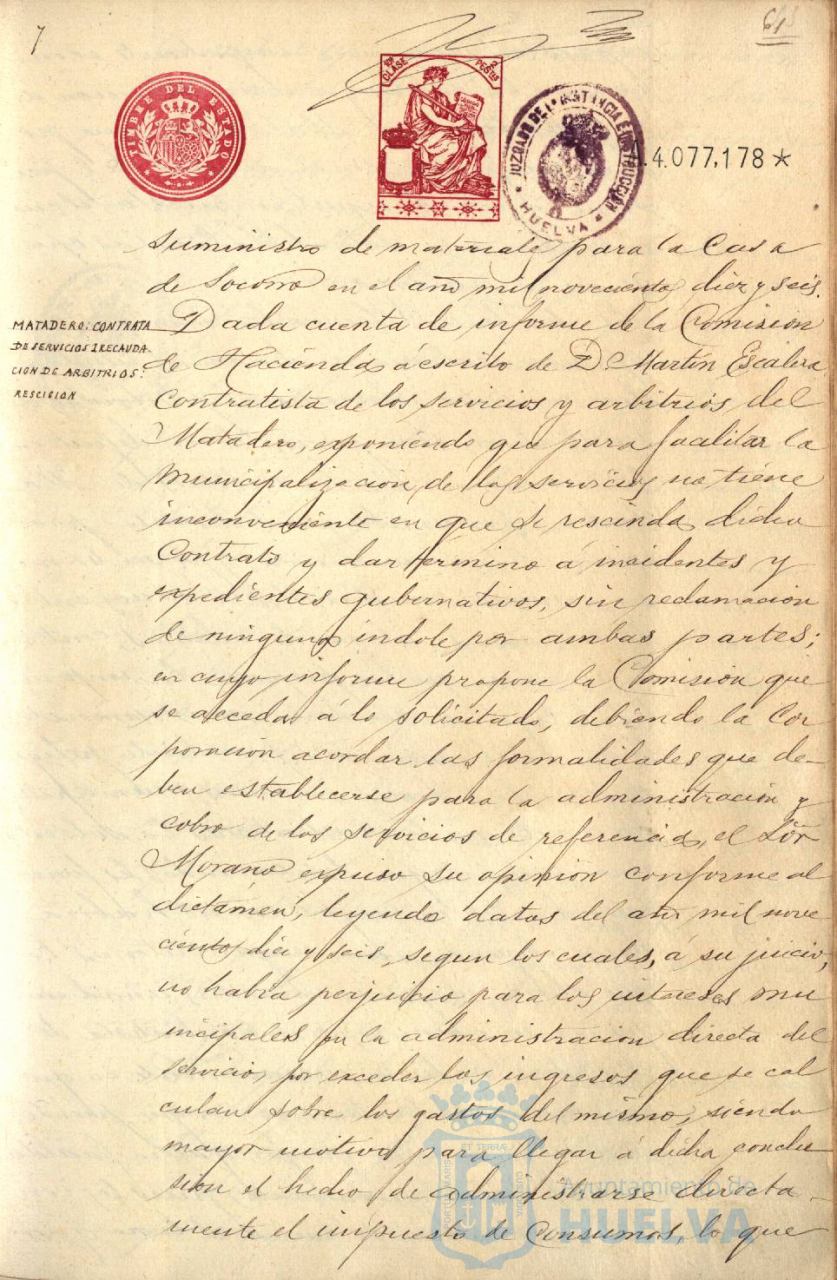 7
TIMBRE DEL ESTADO
CLASE
2 PESTAS
JUZGADO DE 1ª INSTANCIA E INSTRUCCION
HUELVA
4.077,178 *
suministro de materiale para la Casa
de Socorro en el año mil novecientos diez y seis.
MATADERO: CONTRATA
DE SERVICIOS I RECAUDA-
CION DE ARBITRIOS:
RESCICION
Dada cuenta de informe de la Comisión
de Hacienda á escrito de D. Martín Escalera
Contratista de los servicios y arbitrios del
Matadero, exponiendo que para facilitar la
municipalización de los servicios no tiene
inconveniente en que se rescinda dicho
Contrato y dar término á incidentes y
expedientes gubernativos, sin reclamacion
de ninguna índole por ambas partes;
en cuyo informe propone la Comisión que
se acceda á lo solicitado, debiendo la Cor
poración acordar las formalidades que de-
ben establecerse para la administración y
cobro de los servicios de referencia, el Sor
Morano expuso su opinión conforme al
dictámen, leyendo datos del año mil nove
cientos diez y seis, segun los cuales, á su juicio,
no habia perjuicio para los intereses mu
nicipales en la administracion directa del
servicio, por exceder los ingresos que se cal
culan sobre los gastos del mismo, siendo
mayor motivo para llegar á dicha conclu
sion el hecho de administrarse directa-
mente el impuesto de Consumos, lo que
Ayuntamiento de
HUELVA